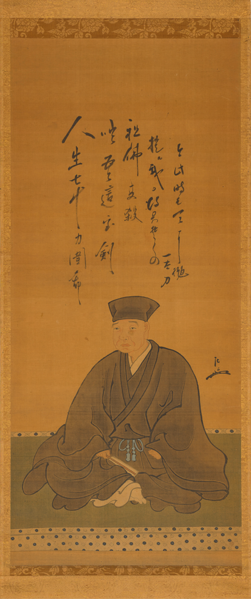 人生七十力圍希ゝ
咄吾這宝剣ゝ
祖佛共殺
提ル我得具足の
一太刀
今此時そ天に抛